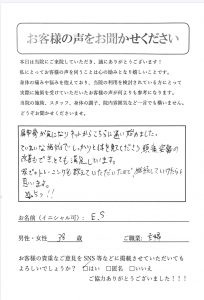 お客様の声をお聞かせください
本日は当院にご来院していただき、誠にありがとうございます！
私にとってお客様の声を伺うことは心の励みとなり嬉しいことです。
身体の痛みや悩みを抱えており、当院の利用を検討されている方にとって
実際に施術を受けていただいたお客様の声が何よりも参考になります。
当院の施術、スタッフ、身体の調子、院内雰囲気など一言でも構いません。
どうぞお聞かせくださいませ。
肩甲骨が気になりネットからこちらに通い始めました。
ていねいな施術でしっかりと体を
改善もでき とても 満足しています。
教えていただいたので、継続して
思います。
お名前（イニシャル可）: E.S
男性・女性 歳 ご職業: 主婦
お客様の貴重なご意見を SNS 等などに掲載させていただいても
よろしいでしょうか？ □はい □匿名 □いいえ
ご協力ありがとうございました！！！